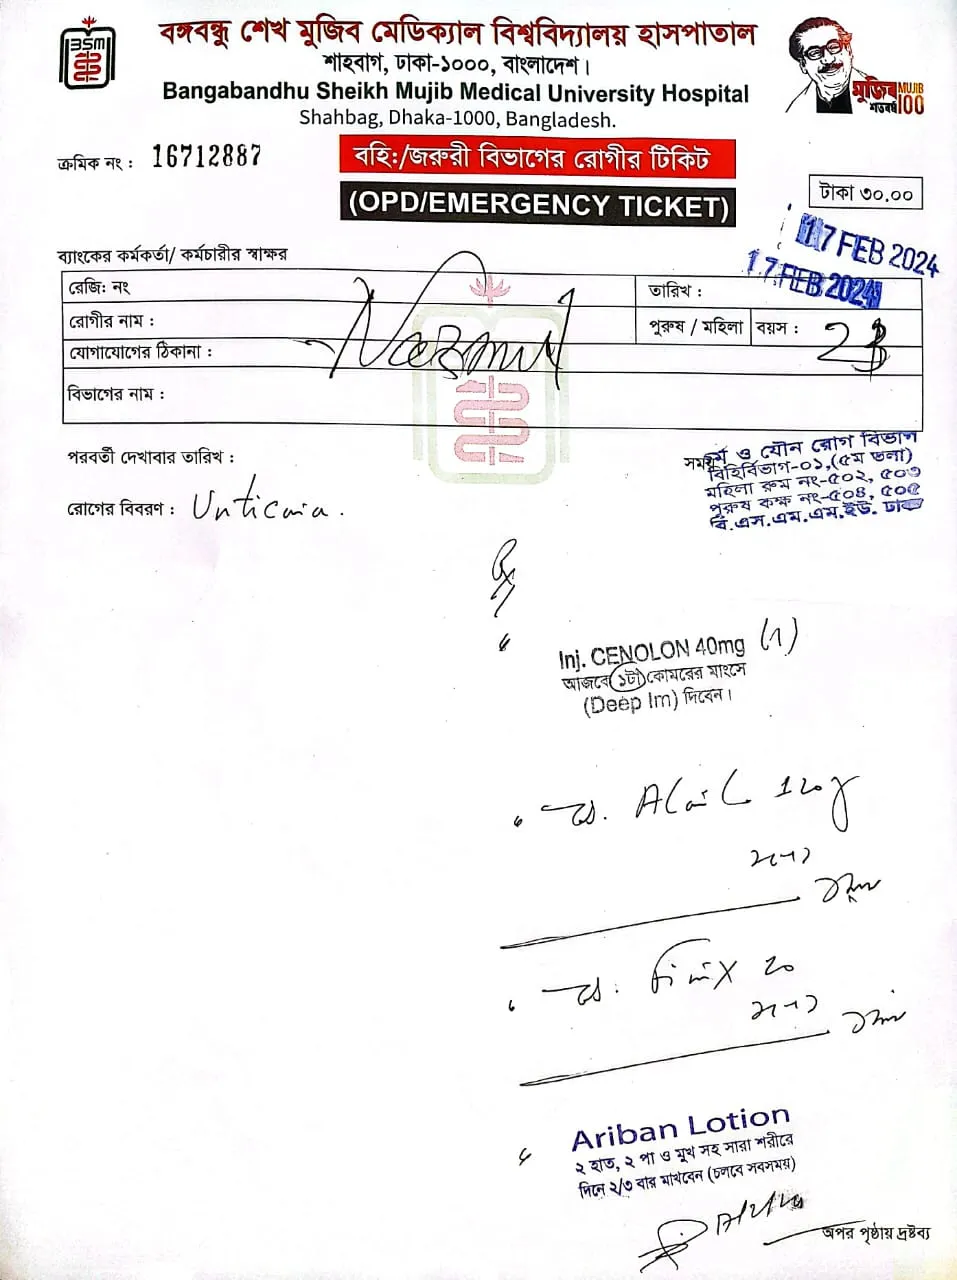 বঙ্গবন্ধু শেখ মুজিব মেডিক্যাল বিশ্ববিদ্যালয় হাসপাতাল
শাহবাগ, ঢাকা-১০০০, বাংলাদেশ।
Bangabandhu Sheikh Mujib Medical University Hospital
Shahbag, Dhaka-1000, Bangladesh.
BSM
মুজিব MUJIB
শতবর্ষ 100
ক্রমিক নং : 16712887
বহি:/জরুরী বিভাগের রোগীর টিকিট
(OPD/EMERGENCY TICKET)
টাকা ৩০.০০
17 FEB 2024
17 FEB 2024
ব্যাংকের কর্মকর্তা/ কর্মচারীর স্বাক্ষর
রেজি: নং
তারিখ :
রোগীর নাম :
পুরুষ / মহিলা বয়স : 23
যোগাযোগের ঠিকানা :
বিভাগের নাম :
পরবর্তী দেখাবার তারিখ :
সময়
চর্ম ও যৌন রোগ বিভাগ
বহির্বিভাগ-০১,(৫ম তলা)
মহিলা রুম নং-৫০২, ৫০৩
পুরুষ কক্ষ নং-৫০৪, ৫০৫
বি.এস.এম.এম.ইউ. ঢাকা
রোগের বিবরণ : Urticaria.
Rx
Inj. CENOLON 40mg (1)
আজকে ১টা কোমরের মাংসে
(Deep Im) দিবেন।
120
20
Ariban Lotion
২ হাত, ২ পা ও মুখ সহ সারা শরীরে
দিনে ২/৩ বার মাখবেন (চলবে সবসময়)
অপর পৃষ্ঠায় দ্রষ্টব্য